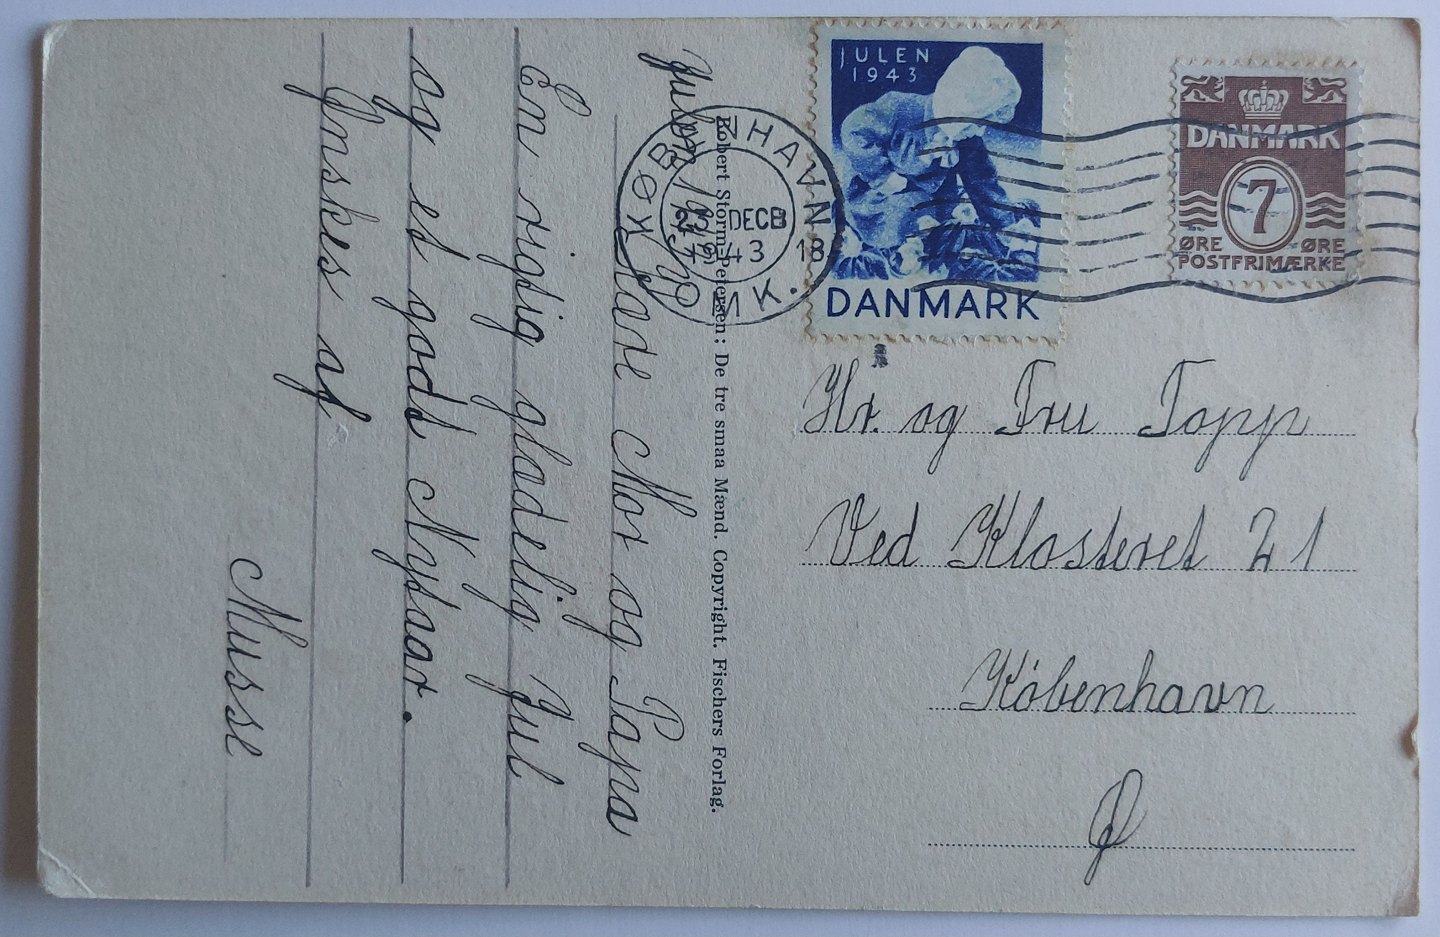 Julen 1943
Kære Mor og Papa
En rigtig glædelig Jul
og et godt Nytaar.
Ønskes af
Musse
Robert Storm-Petersen: De tre smaa Mænd. Copyright. Fischers Forlag.
KØBENHAVN
DECB
1943 18
OMK.
JULEN
1943
DANMARK
DANMARK
7
ØRE ØRE
POSTFRIMÆRKE
Hr. og Fru Topp
Ved Klosteret 21
København
Ø